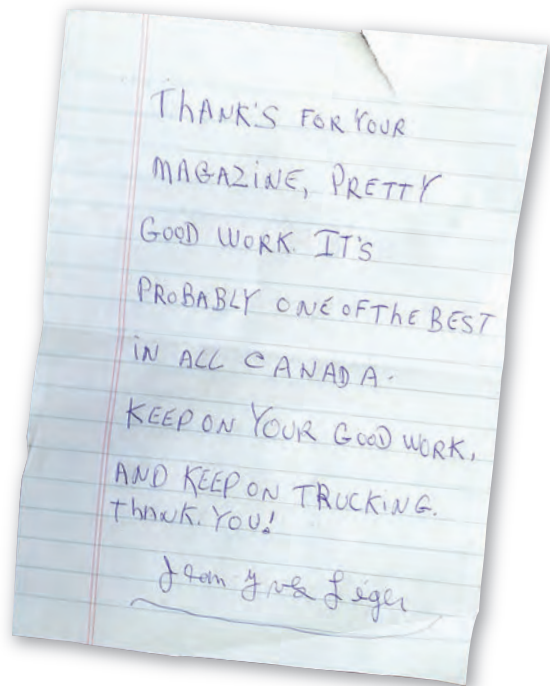 THANK'S FOR YOUR
MAGAZINE, PRETTY
GOOD WORK. IT'S
PROBABLY ONE OF THE BEST
IN ALL CANADA.
KEEP ON YOUR GOOD WORK,
AND KEEP ON TRUCKING.
THANK. YOU!
Jean-Yves Léger